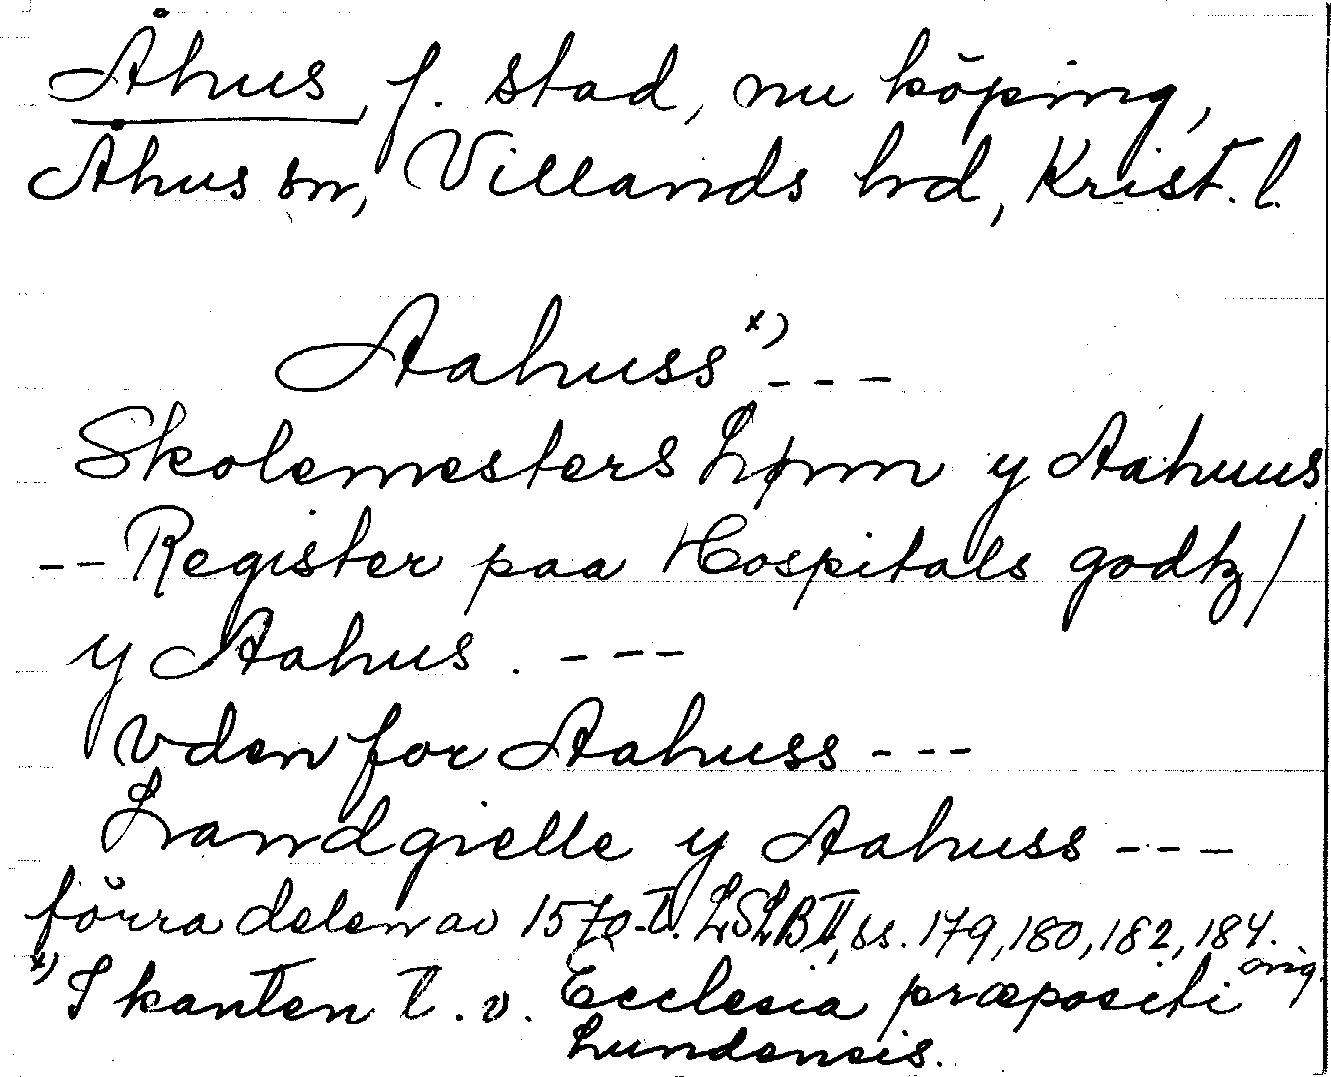 Åhus, f. stad, nu köping,
Åhus sn, Villands hd, Krist. l.
Aahuss x) ---
Skolemesters Lønn y Aahuus
-- Register paa Hospitals godtz /
y Aahus . ---
vden for Aahuss ---
Landgielle y Aahuss ---
förra delen av 1570-t. LSLB II, ss. 179, 180, 182, 184.
x) I kanten t. v. Ecclesia præpositi orig.
Lundensis.